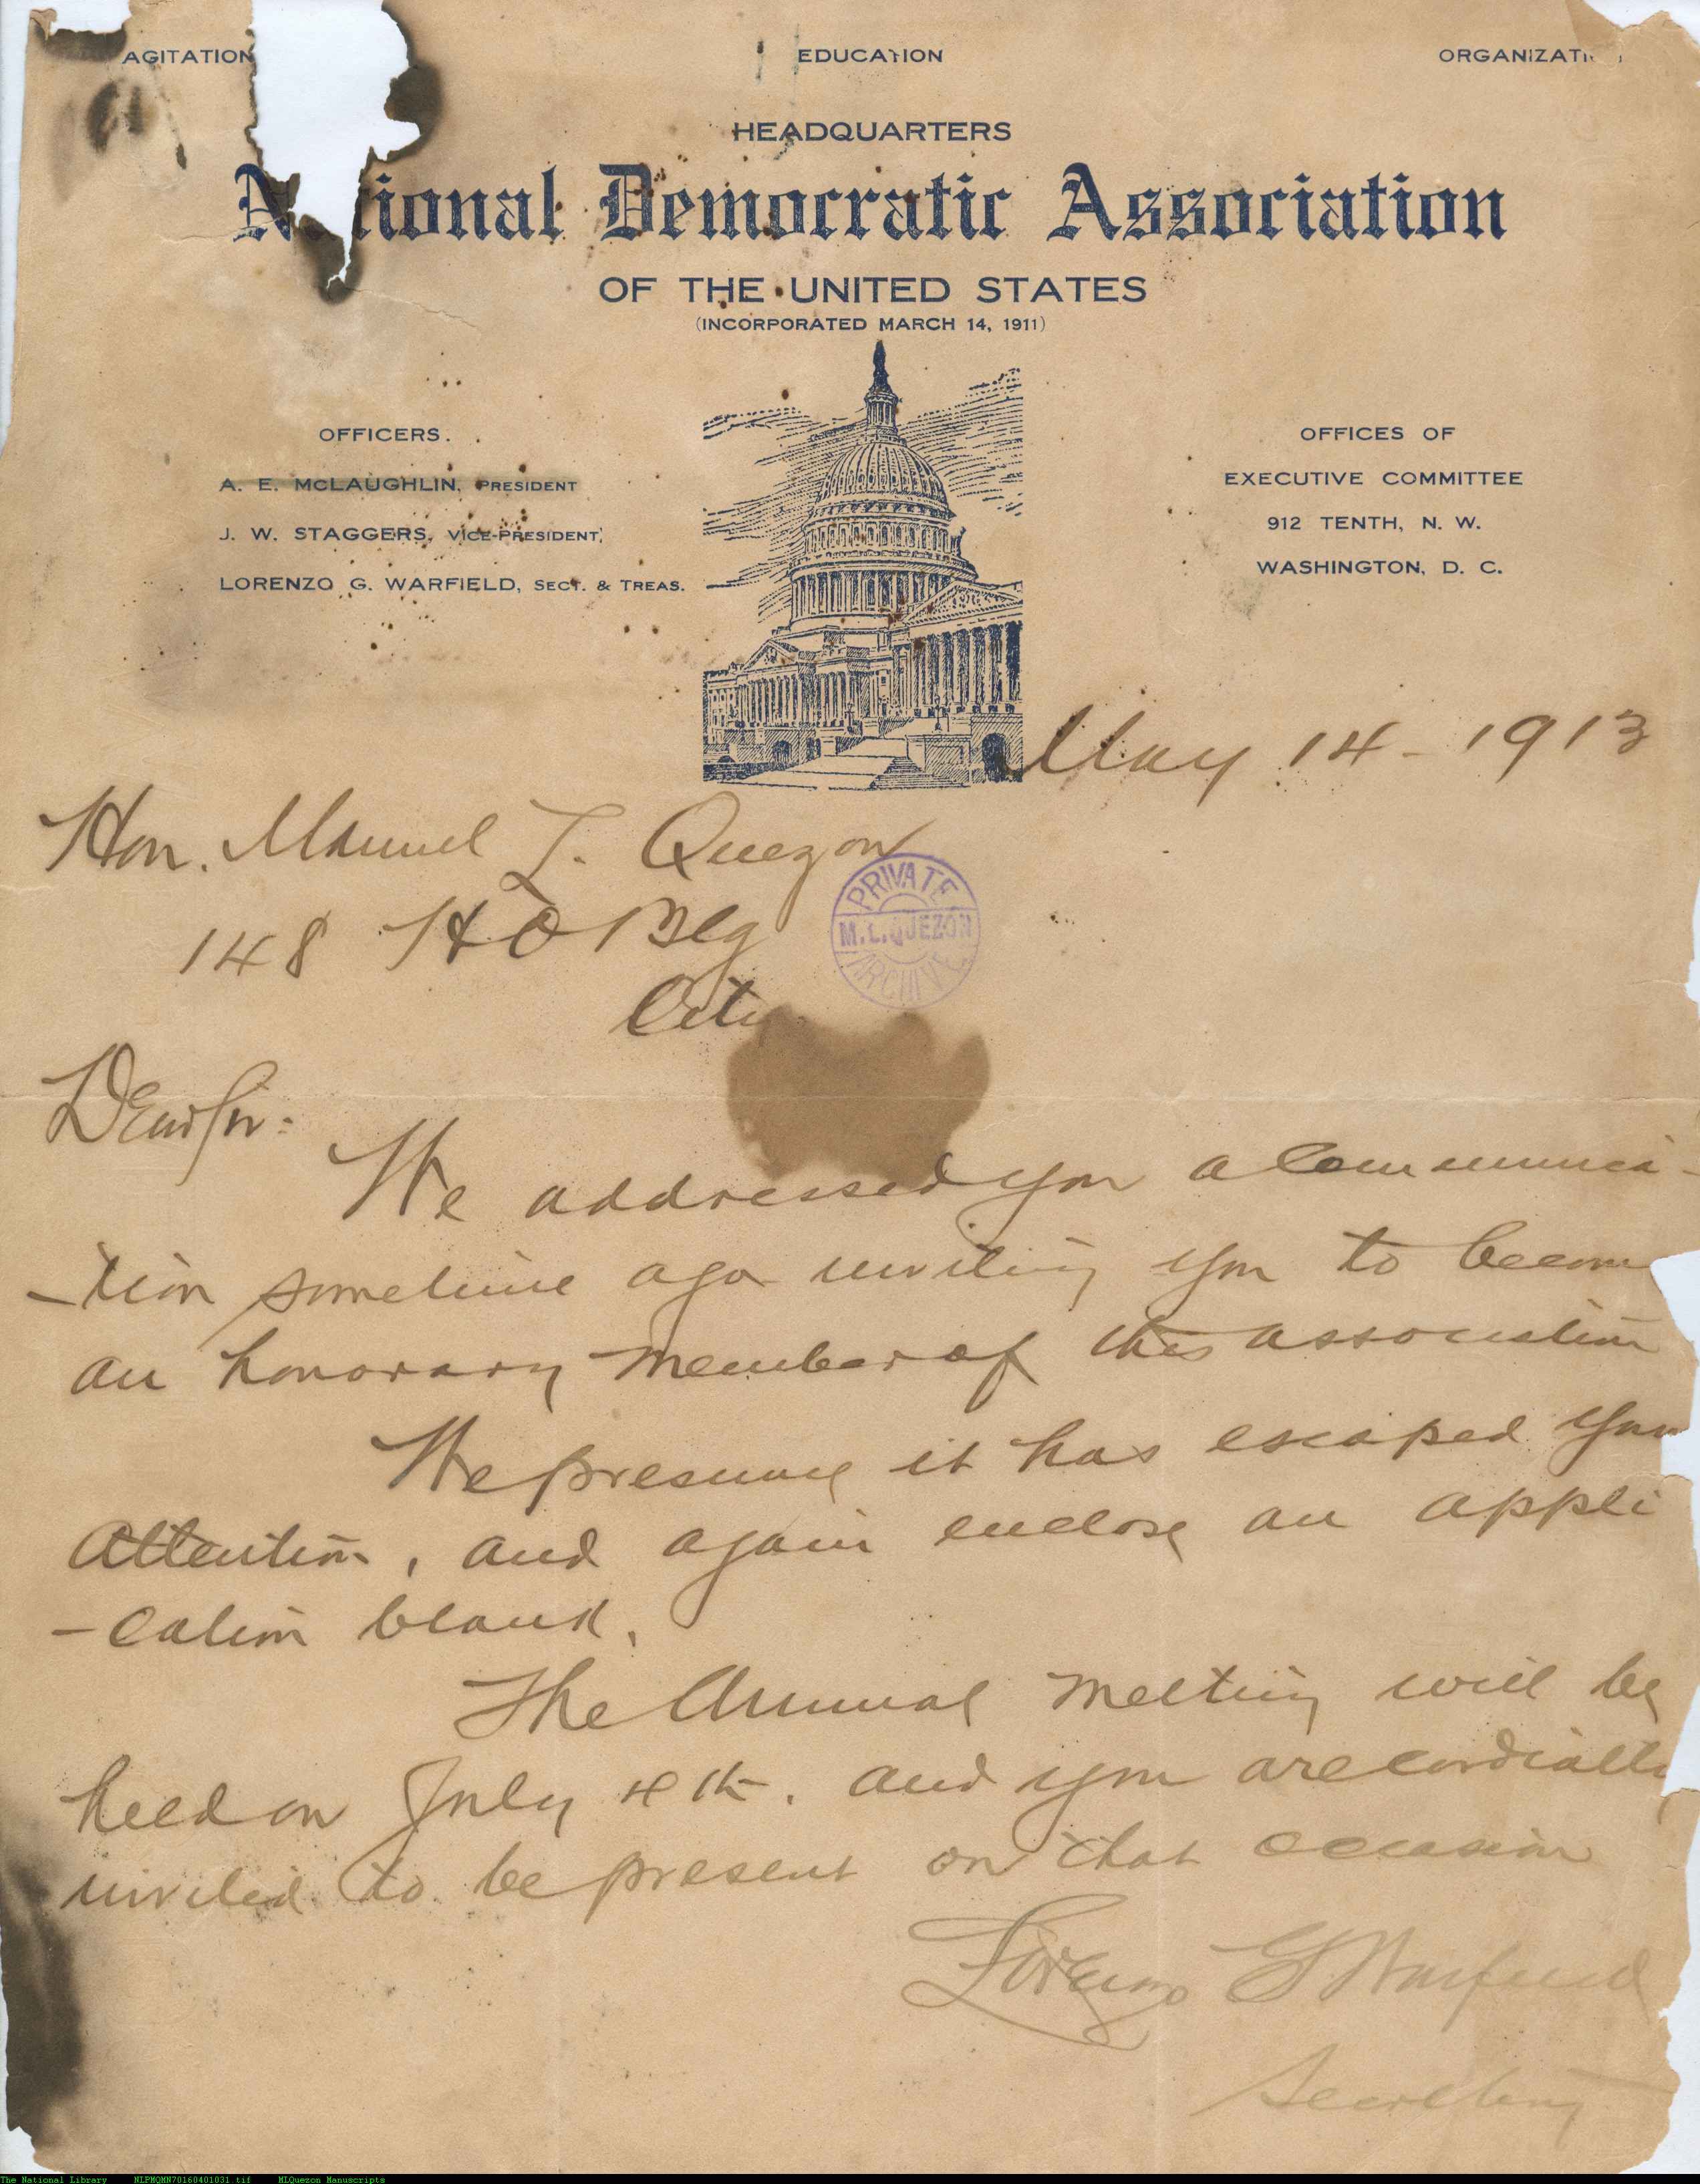 AGITATION EDUCATION ORGANIZATI
HEADQUARTERS
National Democratic Association
OF THE UNITED STATES
(INCORPORATED MARCH 14, 1911)
OFFICERS.
A. E. McLAUGHLIN, PRESIDENT
J. W. STAGGERS, VICE-PRESIDENT,
LORENZO G. WARFIELD, SECT. & TREAS.
OFFICES OF
EXECUTIVE COMMITTEE
912 TENTH, N. W.
WASHINGTON, D. C.
May 14 - 1913
Hon. Manuel L. Quezon
148 H O Blg
City
PRIVATE
M.L.QUEZON
ARCHIVE
Dear Sir:
We addressed you a communica-
-tion sometime ago inviting you to become
an honorary member of this association
We presume it has escaped your
attention, and again enclose an appli
-cation blank.
The Annual meeting will be
held on July 4th. and you are cordially
invited to be present on that occasion
Lorenzo G Warfield
Secretary
The National Library NLPMQMN70160401031.tif MLQuezon Manuscripts